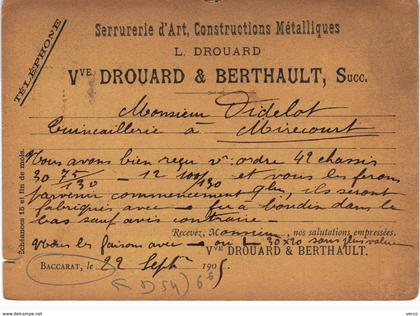 Serrurerie d'Art, Constructions Métalliques
TÉLÉPHONE
L. DROUARD
Vve DROUARD & BERTHAULT, Succ.
Monsieur Didelot
Quincaillerie à Mirecourt
Nous avons bien reçu vt ordre 42 chassis
30 75/130 — 12 100/130 et vous les ferons
parvenir commencement qbre, ils seront
fabriqués avec fer à boudin dans le
bas sauf avis contraire —
Échéances 15 et fin de mois.
Recevez, Monsieur, nos salutations empressées.
Nous les faisons avec ou L 30x20 sans plus value
Vve DROUARD & BERTHAULT.
BACCARAT, le 22 Septbre 1905
(D54)